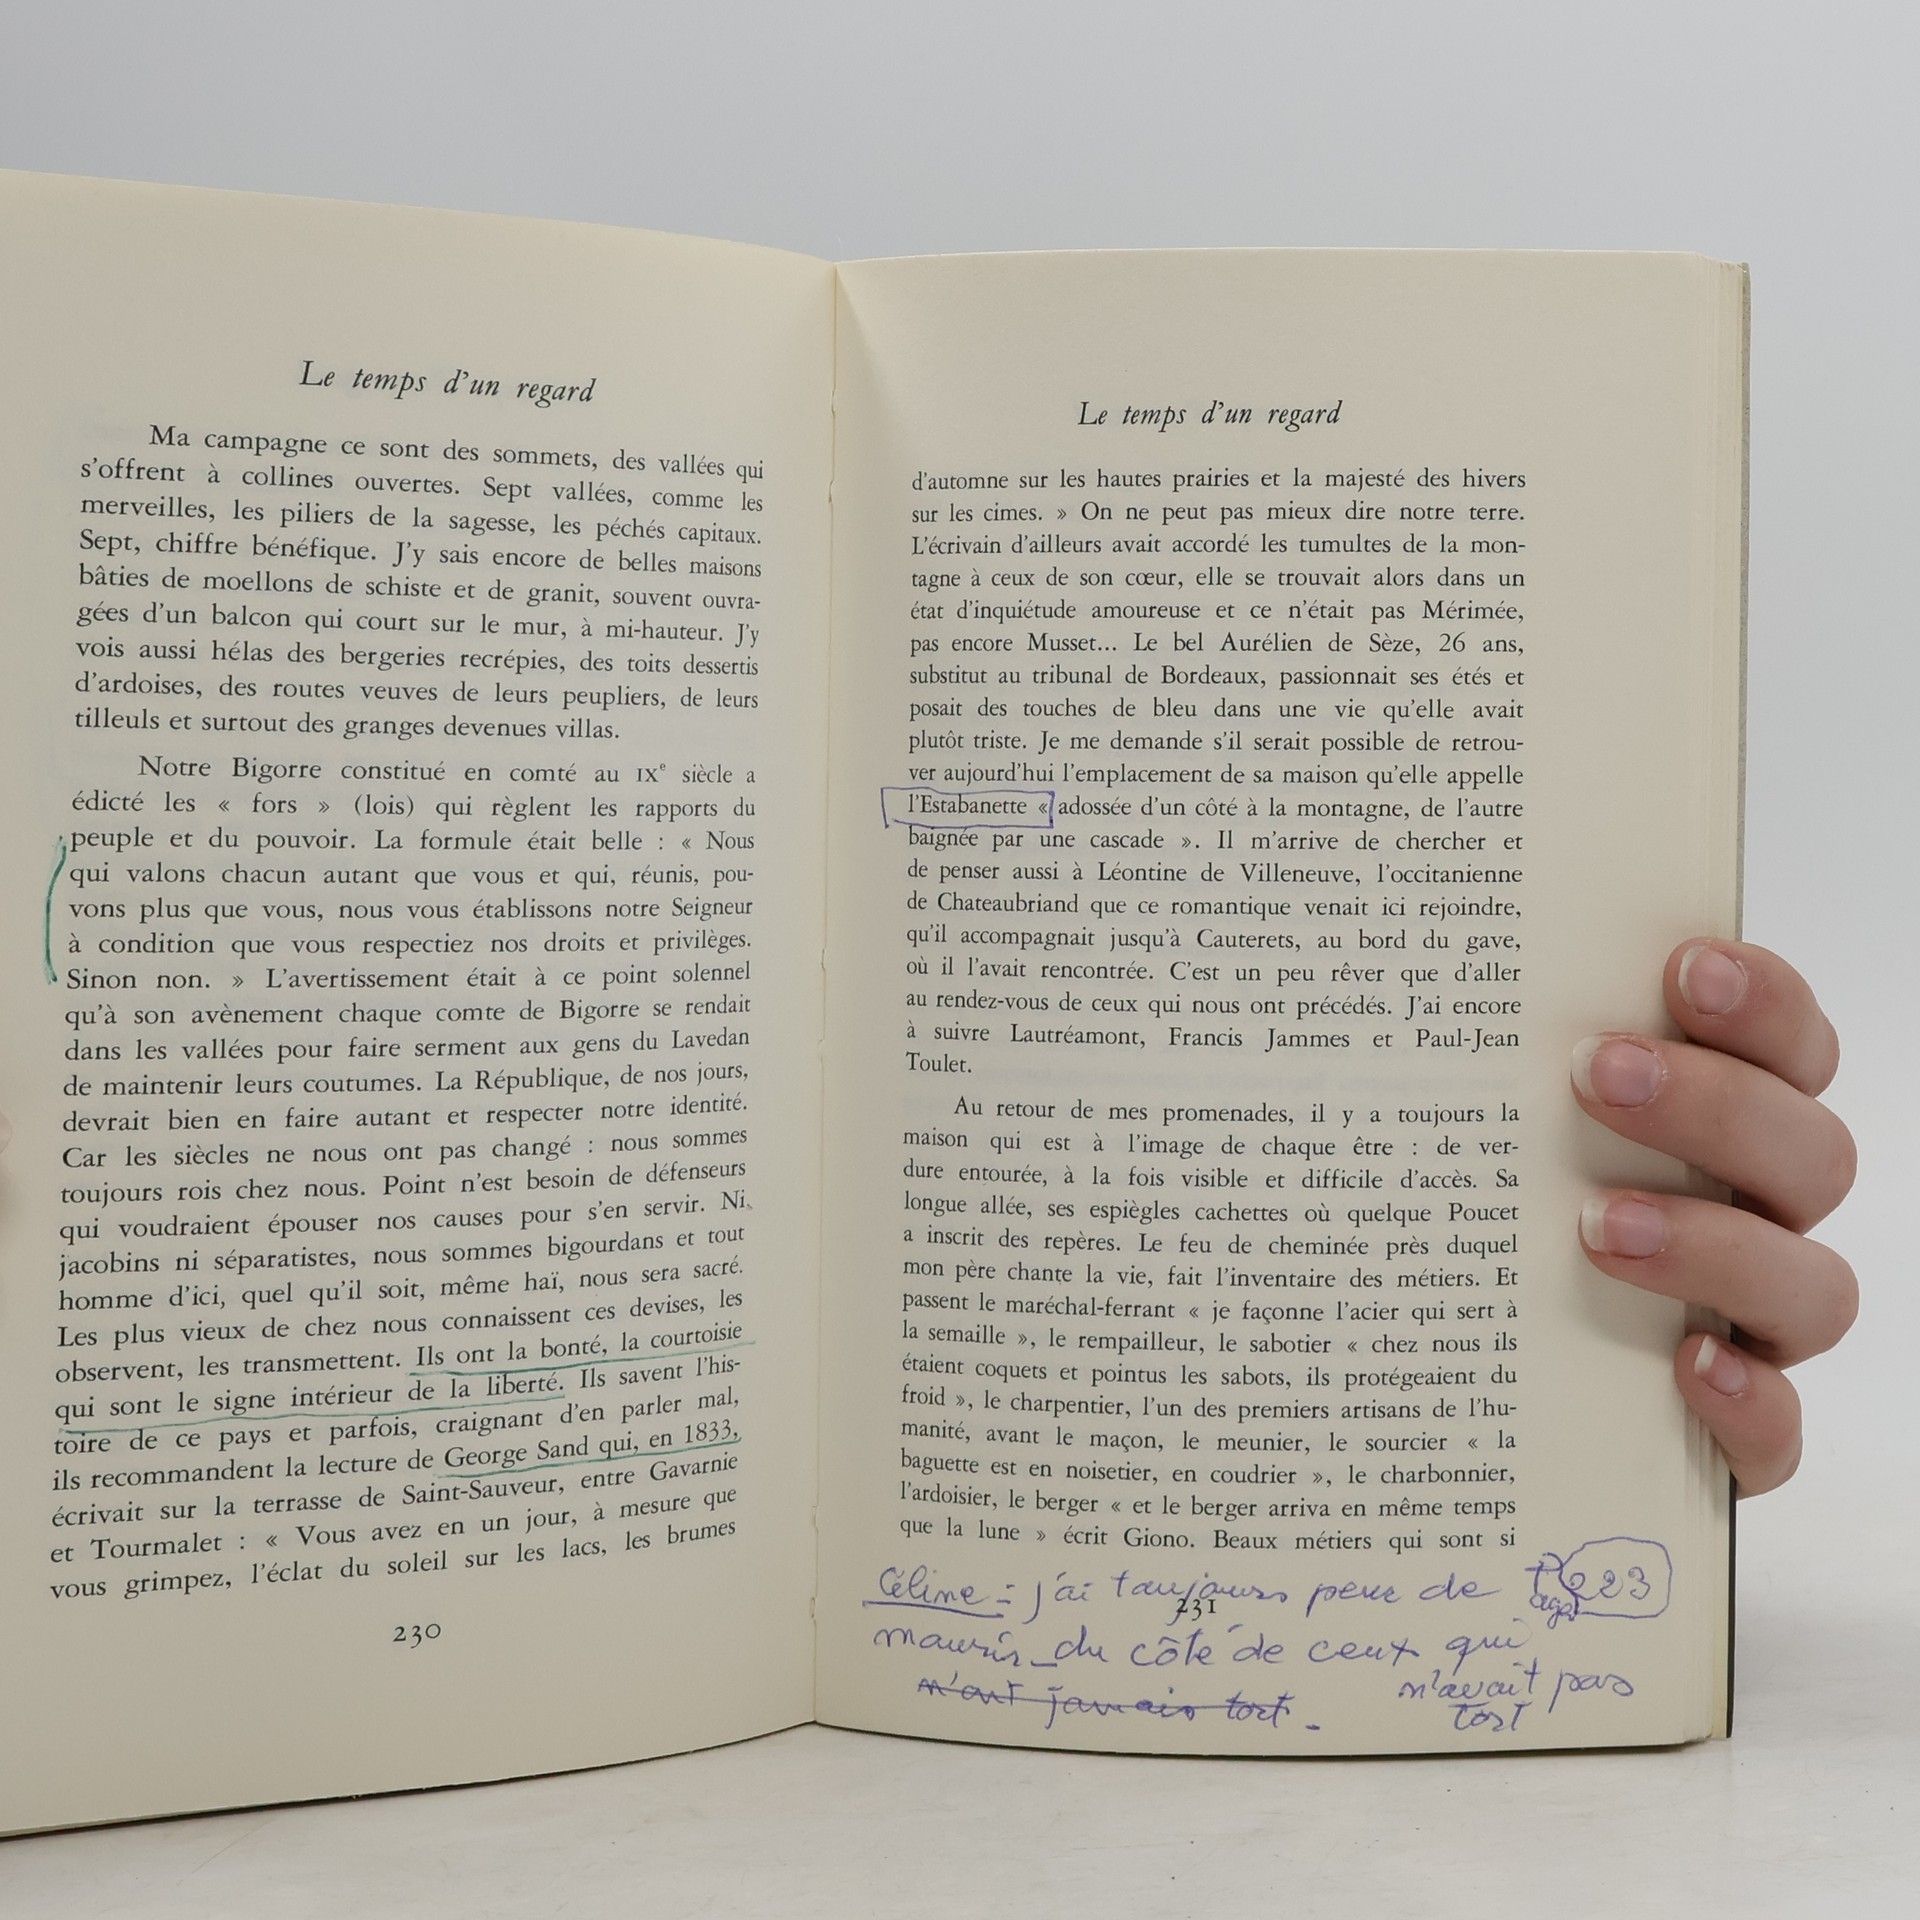 Le temps d'un regard
Ma campagne ce sont des sommets, des vallées qui
s'offrent à collines ouvertes. Sept vallées, comme les
merveilles, les piliers de la sagesse, les péchés capitaux.
Sept, chiffre bénéfique. J'y sais encore de belles maisons
bâties de moellons de schiste et de granit, souvent ouvra-
gées d'un balcon qui court sur le mur, à mi-hauteur. J'y
vois aussi hélas des bergeries recrépies, des toits dessertis
d'ardoises, des routes veuves de leurs peupliers, de leurs
tilleuls et surtout des granges devenues villas.
Notre Bigorre constitué en comté au IXe siècle a
édicté les « fors » (lois) qui règlent les rapports du
peuple et du pouvoir. La formule était belle : « Nous
qui valons chacun autant que vous et qui, réunis, pou-
vons plus que vous, nous vous établissons notre Seigneur
à condition que vous respectiez nos droits et privilèges.
Sinon non. » L'avertissement était à ce point solennel
qu'à son avènement chaque comte de Bigorre se rendait
dans les vallées pour faire serment aux gens du Lavedan
de maintenir leurs coutumes. La République, de nos jours,
devrait bien en faire autant et respecter notre identité.
Car les siècles ne nous ont pas changé : nous sommes
toujours rois chez nous. Point n'est besoin de défenseurs
qui voudraient épouser nos causes pour s'en servir. Ni
jacobins ni séparatistes, nous sommes bigourdans et tout
homme d'ici, quel qu'il soit, même haï, nous sera sacré.
Les plus vieux de chez nous connaissent ces devises, les
observent, les transmettent. Ils ont la bonté, la courtoisie
qui sont le signe intérieur de la liberté. Ils savent l'his-
toire de ce pays et parfois, craignant d'en parler mal,
ils recommandent la lecture de George Sand qui, en 1833,
écrivait sur la terrasse de Saint-Sauveur, entre Gavarnie
et Tourmalet : « Vous avez en un jour, à mesure que
vous grimpez, l'éclat du soleil sur les lacs, les brumes
230
Le temps d'un regard
d'automne sur les hautes prairies et la majesté des hivers
sur les cimes. » On ne peut pas mieux dire notre terre.
L'écrivain d'ailleurs avait accordé les tumultes de la mon-
tagne à ceux de son cœur, elle se trouvait alors dans un
état d'inquiétude amoureuse et ce n'était pas Mérimée,
pas encore Musset... Le bel Aurélien de Sèze, 26 ans,
substitut au tribunal de Bordeaux, passionnait ses étés et
posait des touches de bleu dans une vie qu'elle avait
plutôt triste. Je me demande s'il serait possible de retrou-
ver aujourd'hui l'emplacement de sa maison qu'elle appelle
l'Estabanette « adossée d'un côté à la montagne, de l'autre
baignée par une cascade ». Il m'arrive de chercher et
de penser aussi à Léontine de Villeneuve, l'occitanienne
de Chateaubriand que ce romantique venait ici rejoindre,
qu'il accompagnait jusqu'à Cauterets, au bord du gave,
où il l'avait rencontrée. C'est un peu rêver que d'aller
au rendez-vous de ceux qui nous ont précédés. J'ai encore
à suivre Lautréamont, Francis Jammes et Paul-Jean
Toulet.
Au retour de mes promenades, il y a toujours la
maison qui est à l'image de chaque être : de ver-
dure entourée, à la fois visible et difficile d'accès. Sa
longue allée, ses espiègles cachettes où quelque Poucet
a inscrit des repères. Le feu de cheminée près duquel
mon père chante la vie, fait l'inventaire des métiers. Et
passent le maréchal-ferrant « je façonne l'acier qui sert à
la semaille », le rempailleur, le sabotier « chez nous ils
étaient coquets et pointus les sabots, ils protégeaient du
froid », le charpentier, l'un des premiers artisans de l'hu-
manité, avant le maçon, le meunier, le sourcier « la
baguette est en noisetier, en coudrier », le charbonnier,
l'ardoisier, le berger « et le berger arriva en même temps
que la lune » écrit Giono. Beaux métiers qui sont si
Céline = j'ai toujours peur de Page 223
231
mourir du côté de ceux qui
n'ont jamais tort. n'avait pas
tort